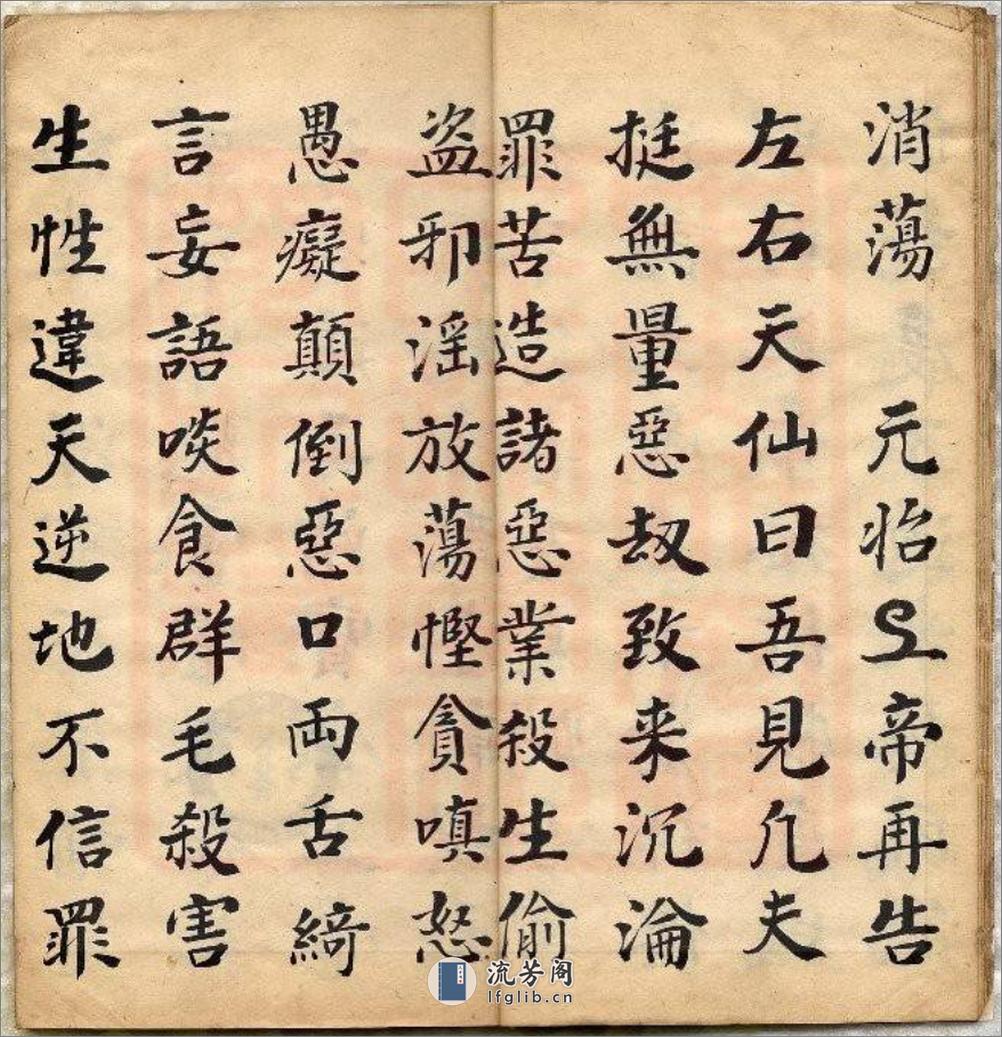 消蕩 元始上帝再告
左右天仙曰吾見凢夫
挺無量惡劫致来沉淪
罪苦造諸惡業殺生偷
盗邪淫放蕩慳貪嗔怒
愚癡顛倒惡口両舌綺
言妄語啖食群毛殺害
生性違天逆地不信罪
流芳阁
lfglib.cn